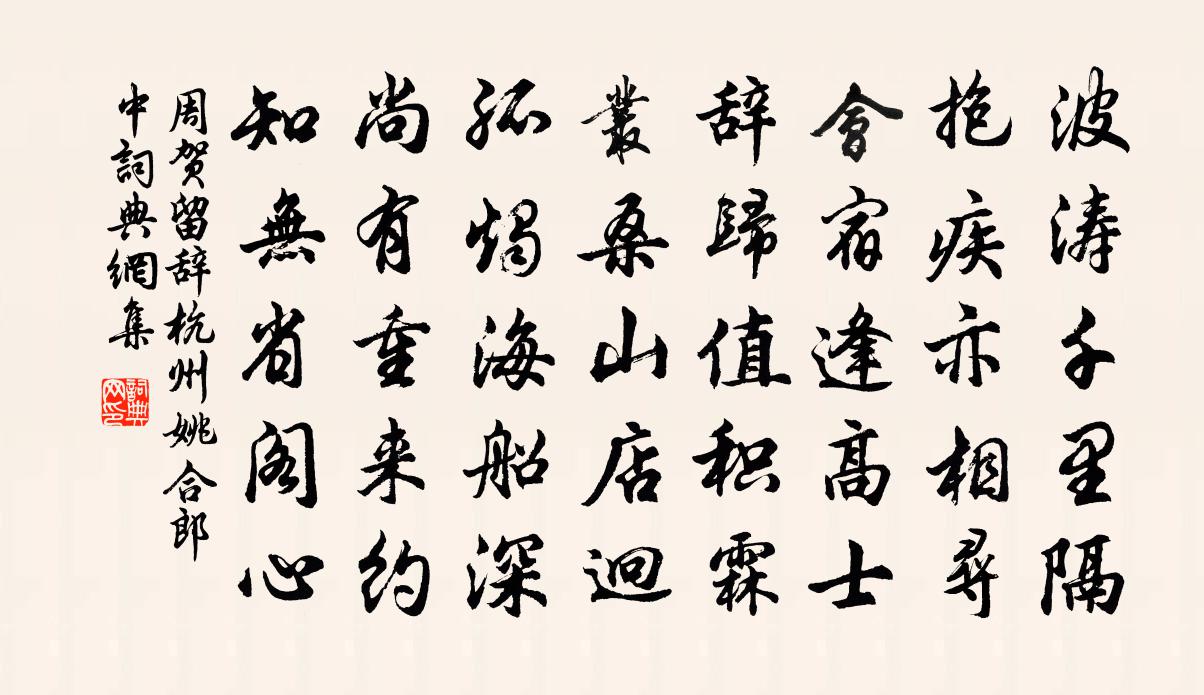 波涛千里隔
抱疾亦相尋
會宿逢高士
辞歸值积霖
叢桑山店迥
孤燭海船深
尚有重来约
知無省阁心
周贺留辞杭州姚合郎
中詞典網集
詞典
网印